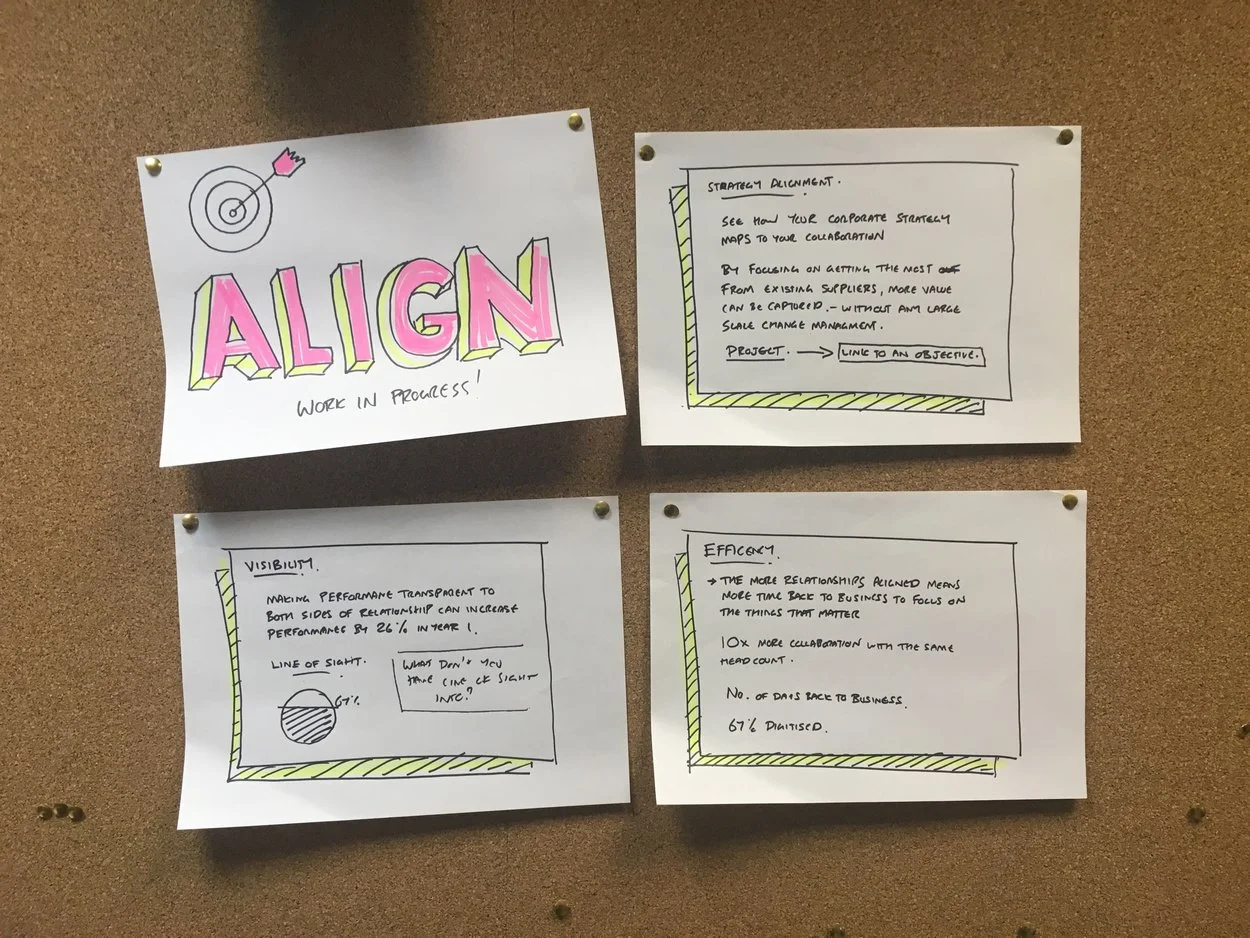 ALIGN
WORK IN PROGRESS!
STRATEGY ALIGNMENT.
SEE HOW YOUR CORPORATE STRATEGY
MAPS TO YOUR COLLABORATION
BY FOCUSING ON GETTING THE MOST OUT
FROM EXISTING SUPPLIERS, MORE VALUE
CAN BE CAPTURED. - WITHOUT ANY LARGE
SCALE CHANGE MANAGMENT.
PROJECT. → LINK TO AN OBJECTIVE.
VISIBILITY.
MAKING PERFORMANE TRANSPARENT TO
BOTH SIDES OF RELATIONSHIP CAN INCREASE
PERFORMANCE BY 26% IN YEAR 1.
LINE OF SIGHT.
67%.
WHAT DON'T YOU
HAVE LINE OF SIGHT
INTO?
EFFICENCY.
→ THE MORE RELATIONSHIPS ALIGNED MEANS
MORE TIME BACK TO BUSINESS TO FOCUS ON
THE THINGS THAT MATTER
10X MORE COLLABORATION WITH THE SAME
HEADCOUNT.
NO. OF DAYS BACK TO BUSINESS.
67% DIGITISED.